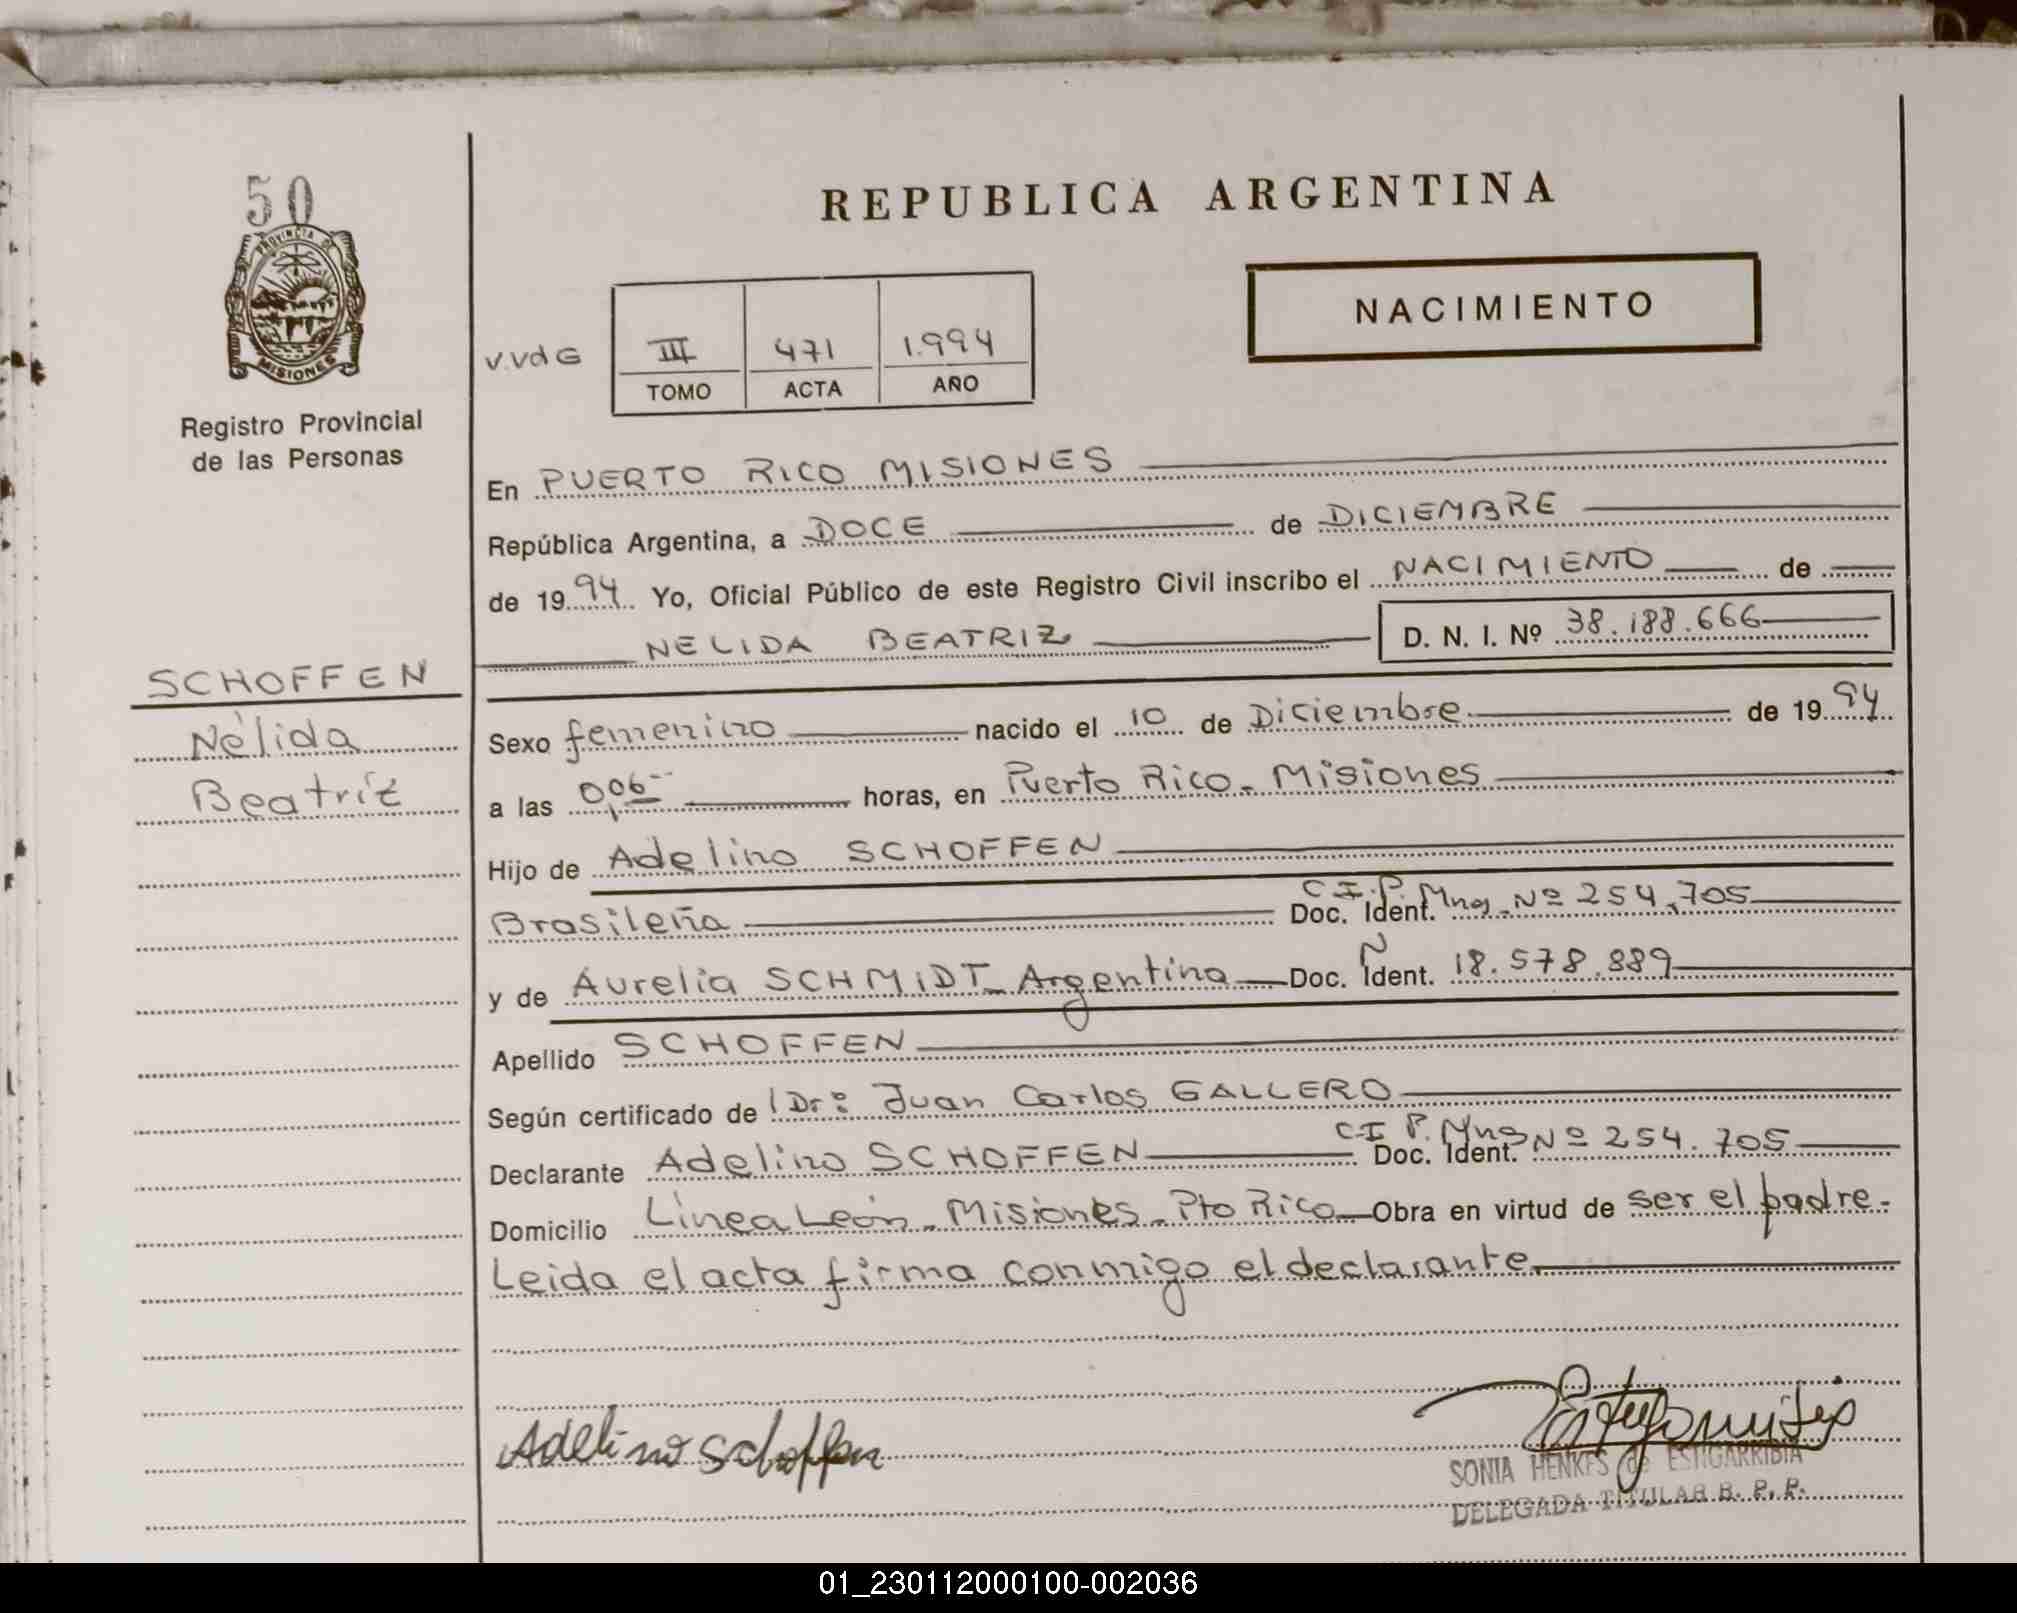 50
PROVINCIA DE
MISIONES
Registro Provincial
de las Personas
REPUBLICA ARGENTINA
NACIMIENTO
V.VdG
III 471 1.994
TOMO ACTA AÑO
En PUERTO RICO MISIONES
República Argentina, a DOCE de DICIEMBRE
de 1994 Yo, Oficial Público de este Registro Civil inscribo el NACIMIENTO de
NELIDA BEATRIZ D. N. I. Nº 38.188.666
SCHOFFEN
Nélida
Beatríz
Sexo femenino nacido el 10 de Diciembre de 1994
a las 0,06 horas, en Puerto Rico - Misiones
Hijo de Adelino SCHOFFEN
Brasileña Doc. Ident. C.I.P. Mnes. Nº 254.705
y de Aurelia SCHMIDT - Argentina Doc. N Ident. 18.578.889
Apellido SCHOFFEN
Según certificado de Dr: Juan Carlos GALLERO
Declarante Adelino SCHOFFEN Doc. Ident. C.I P. Mnes Nº 254.705
Domicilio Línea León - Misiones - Pto Rico Obra en virtud de ser el padre.
Leída el acta firma conmigo el declarante
Adelino Schoffen
SONIA HENKES de ESTIGARRIBIA
DELEGADA TITULAR R. P. P.
01_230112000100-002036